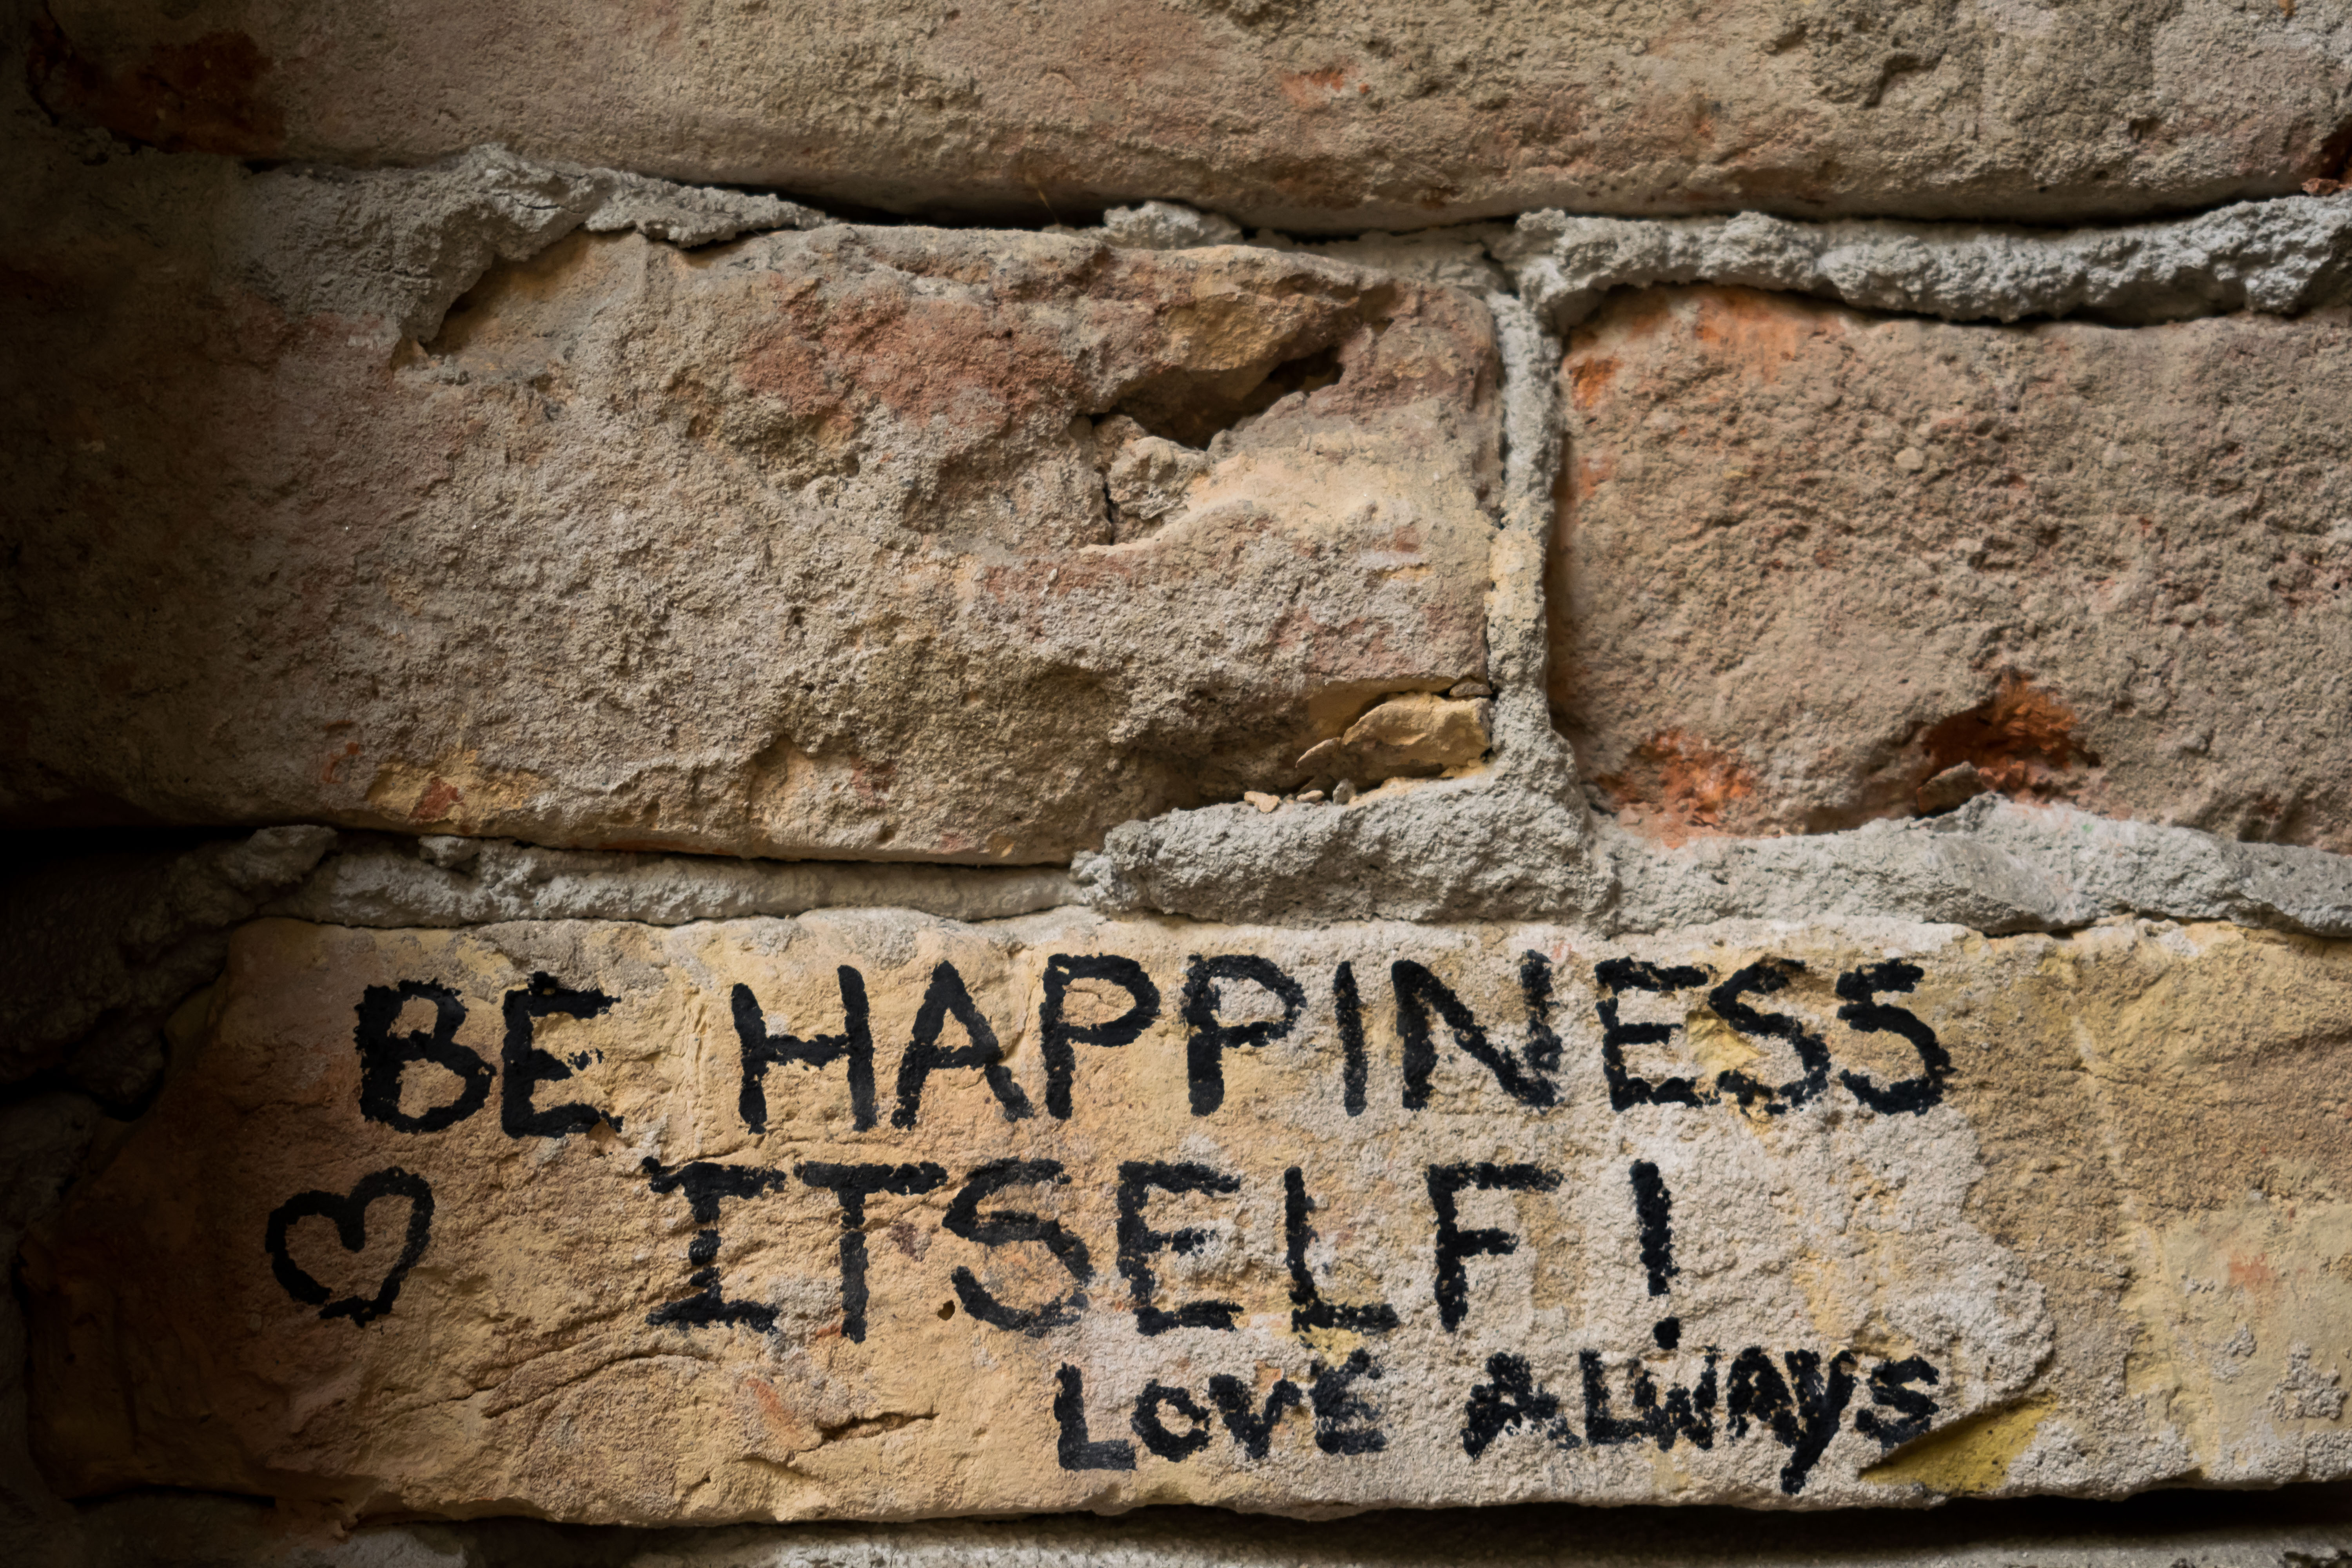 BE HAPPINESS
♡ ITSELF!
LOVE ALWAYS